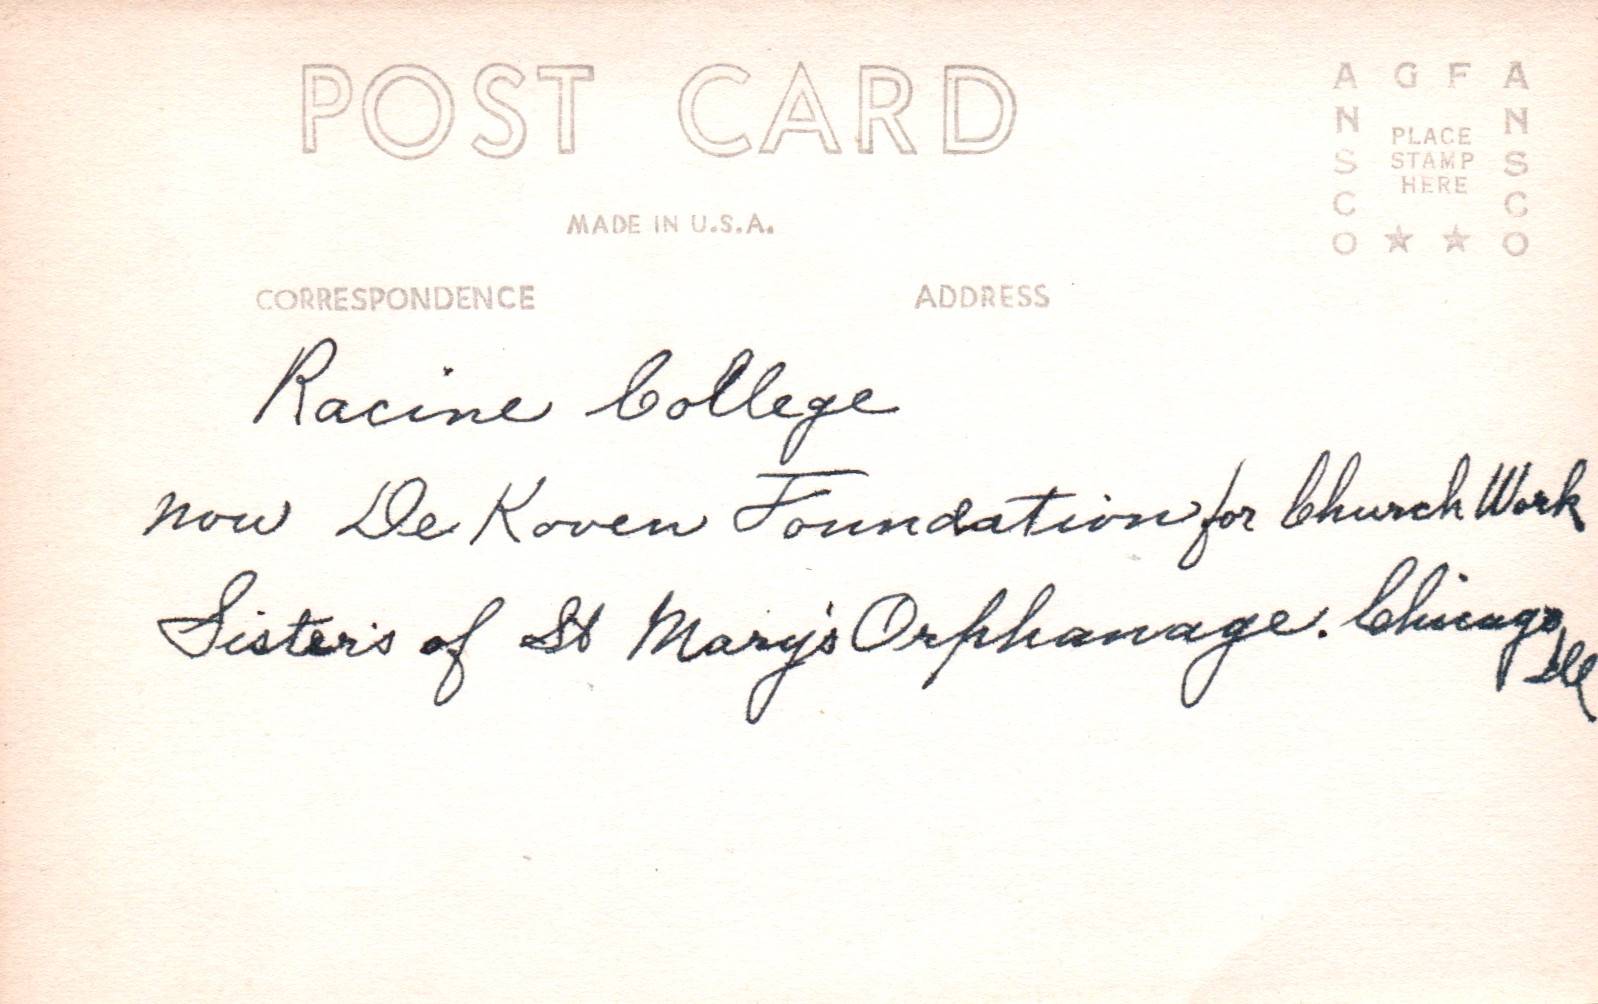 POST CARD
MADE IN U.S.A.
CORRESPONDENCE
ADDRESS
AGFA
ANSCO
ANSCO
PLACE
STAMP
HERE
Racine College
now De Koven Foundation for Church Work
Sister's of St Mary's Orphanage. Chicago
Ill